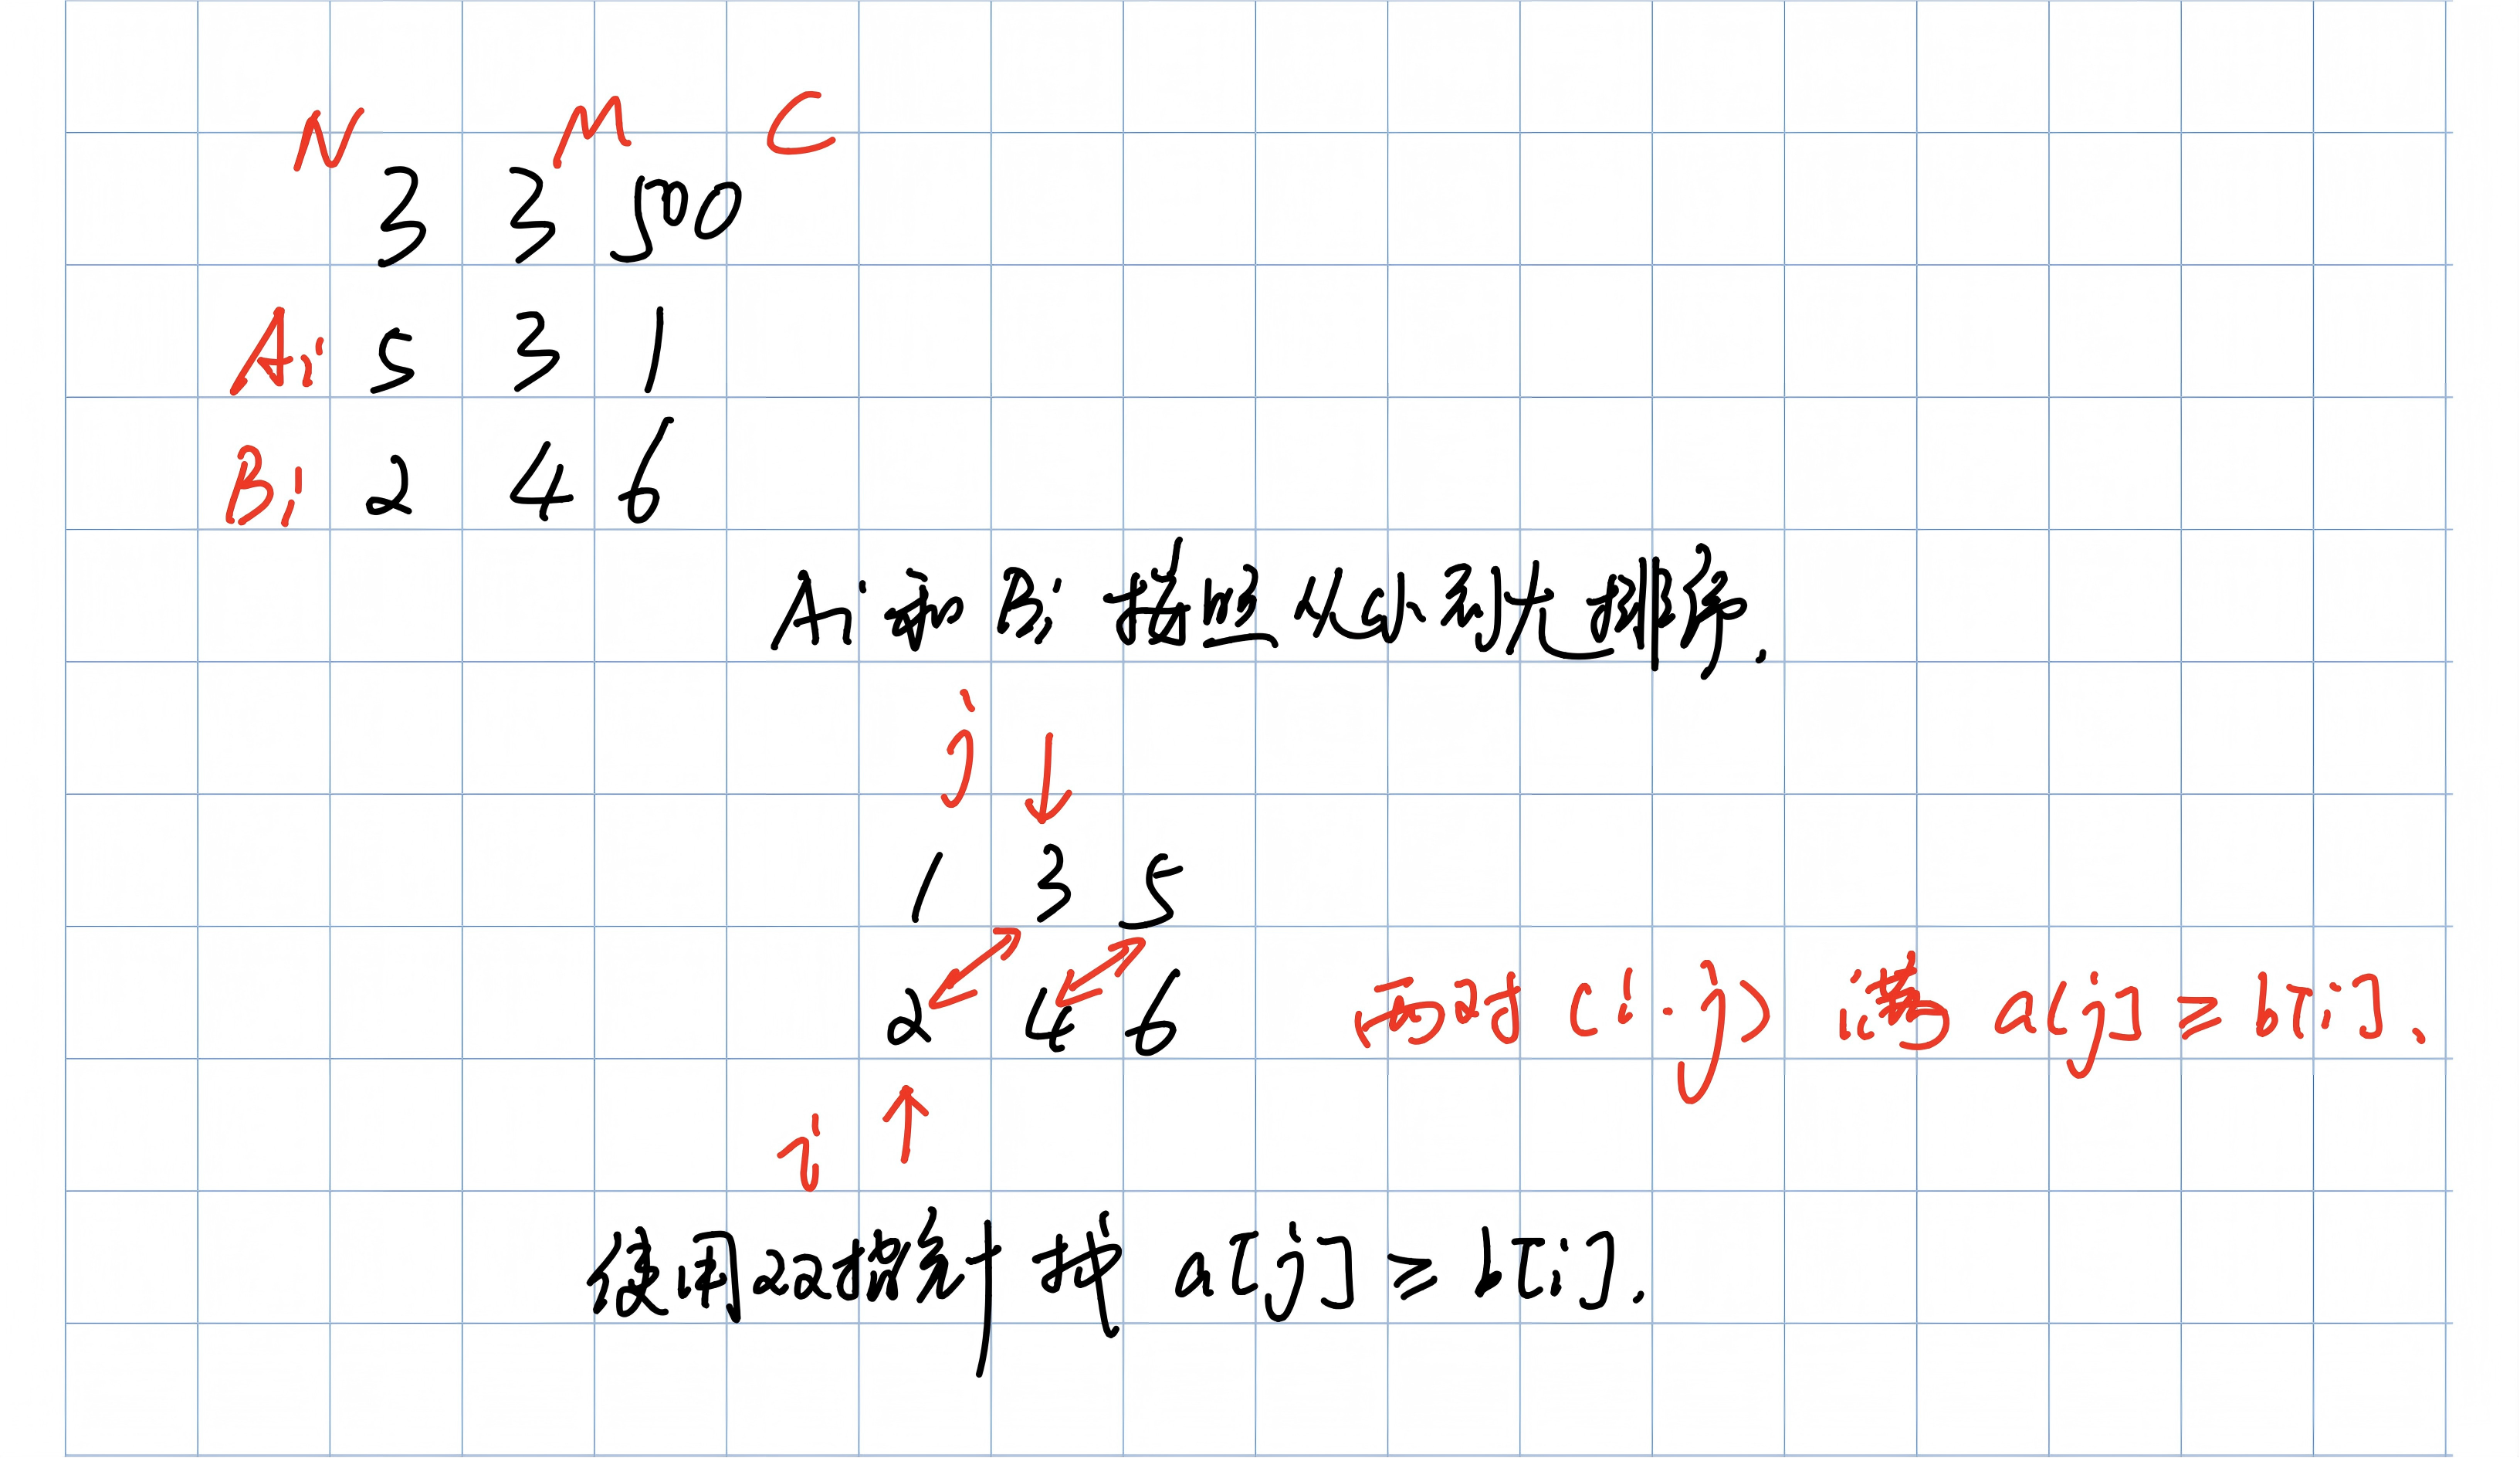 N M C
3 3 500
Ai: 5 3 1
Bi: 2 4 6
Ai 和 Bi 按照从小到大排序.
j ↓
1 3 5
2 4 6
配对 (i, j) 满足 a[j] ≥ b[i].
i ↑
使用双指针找 a[j] ≥ b[i].